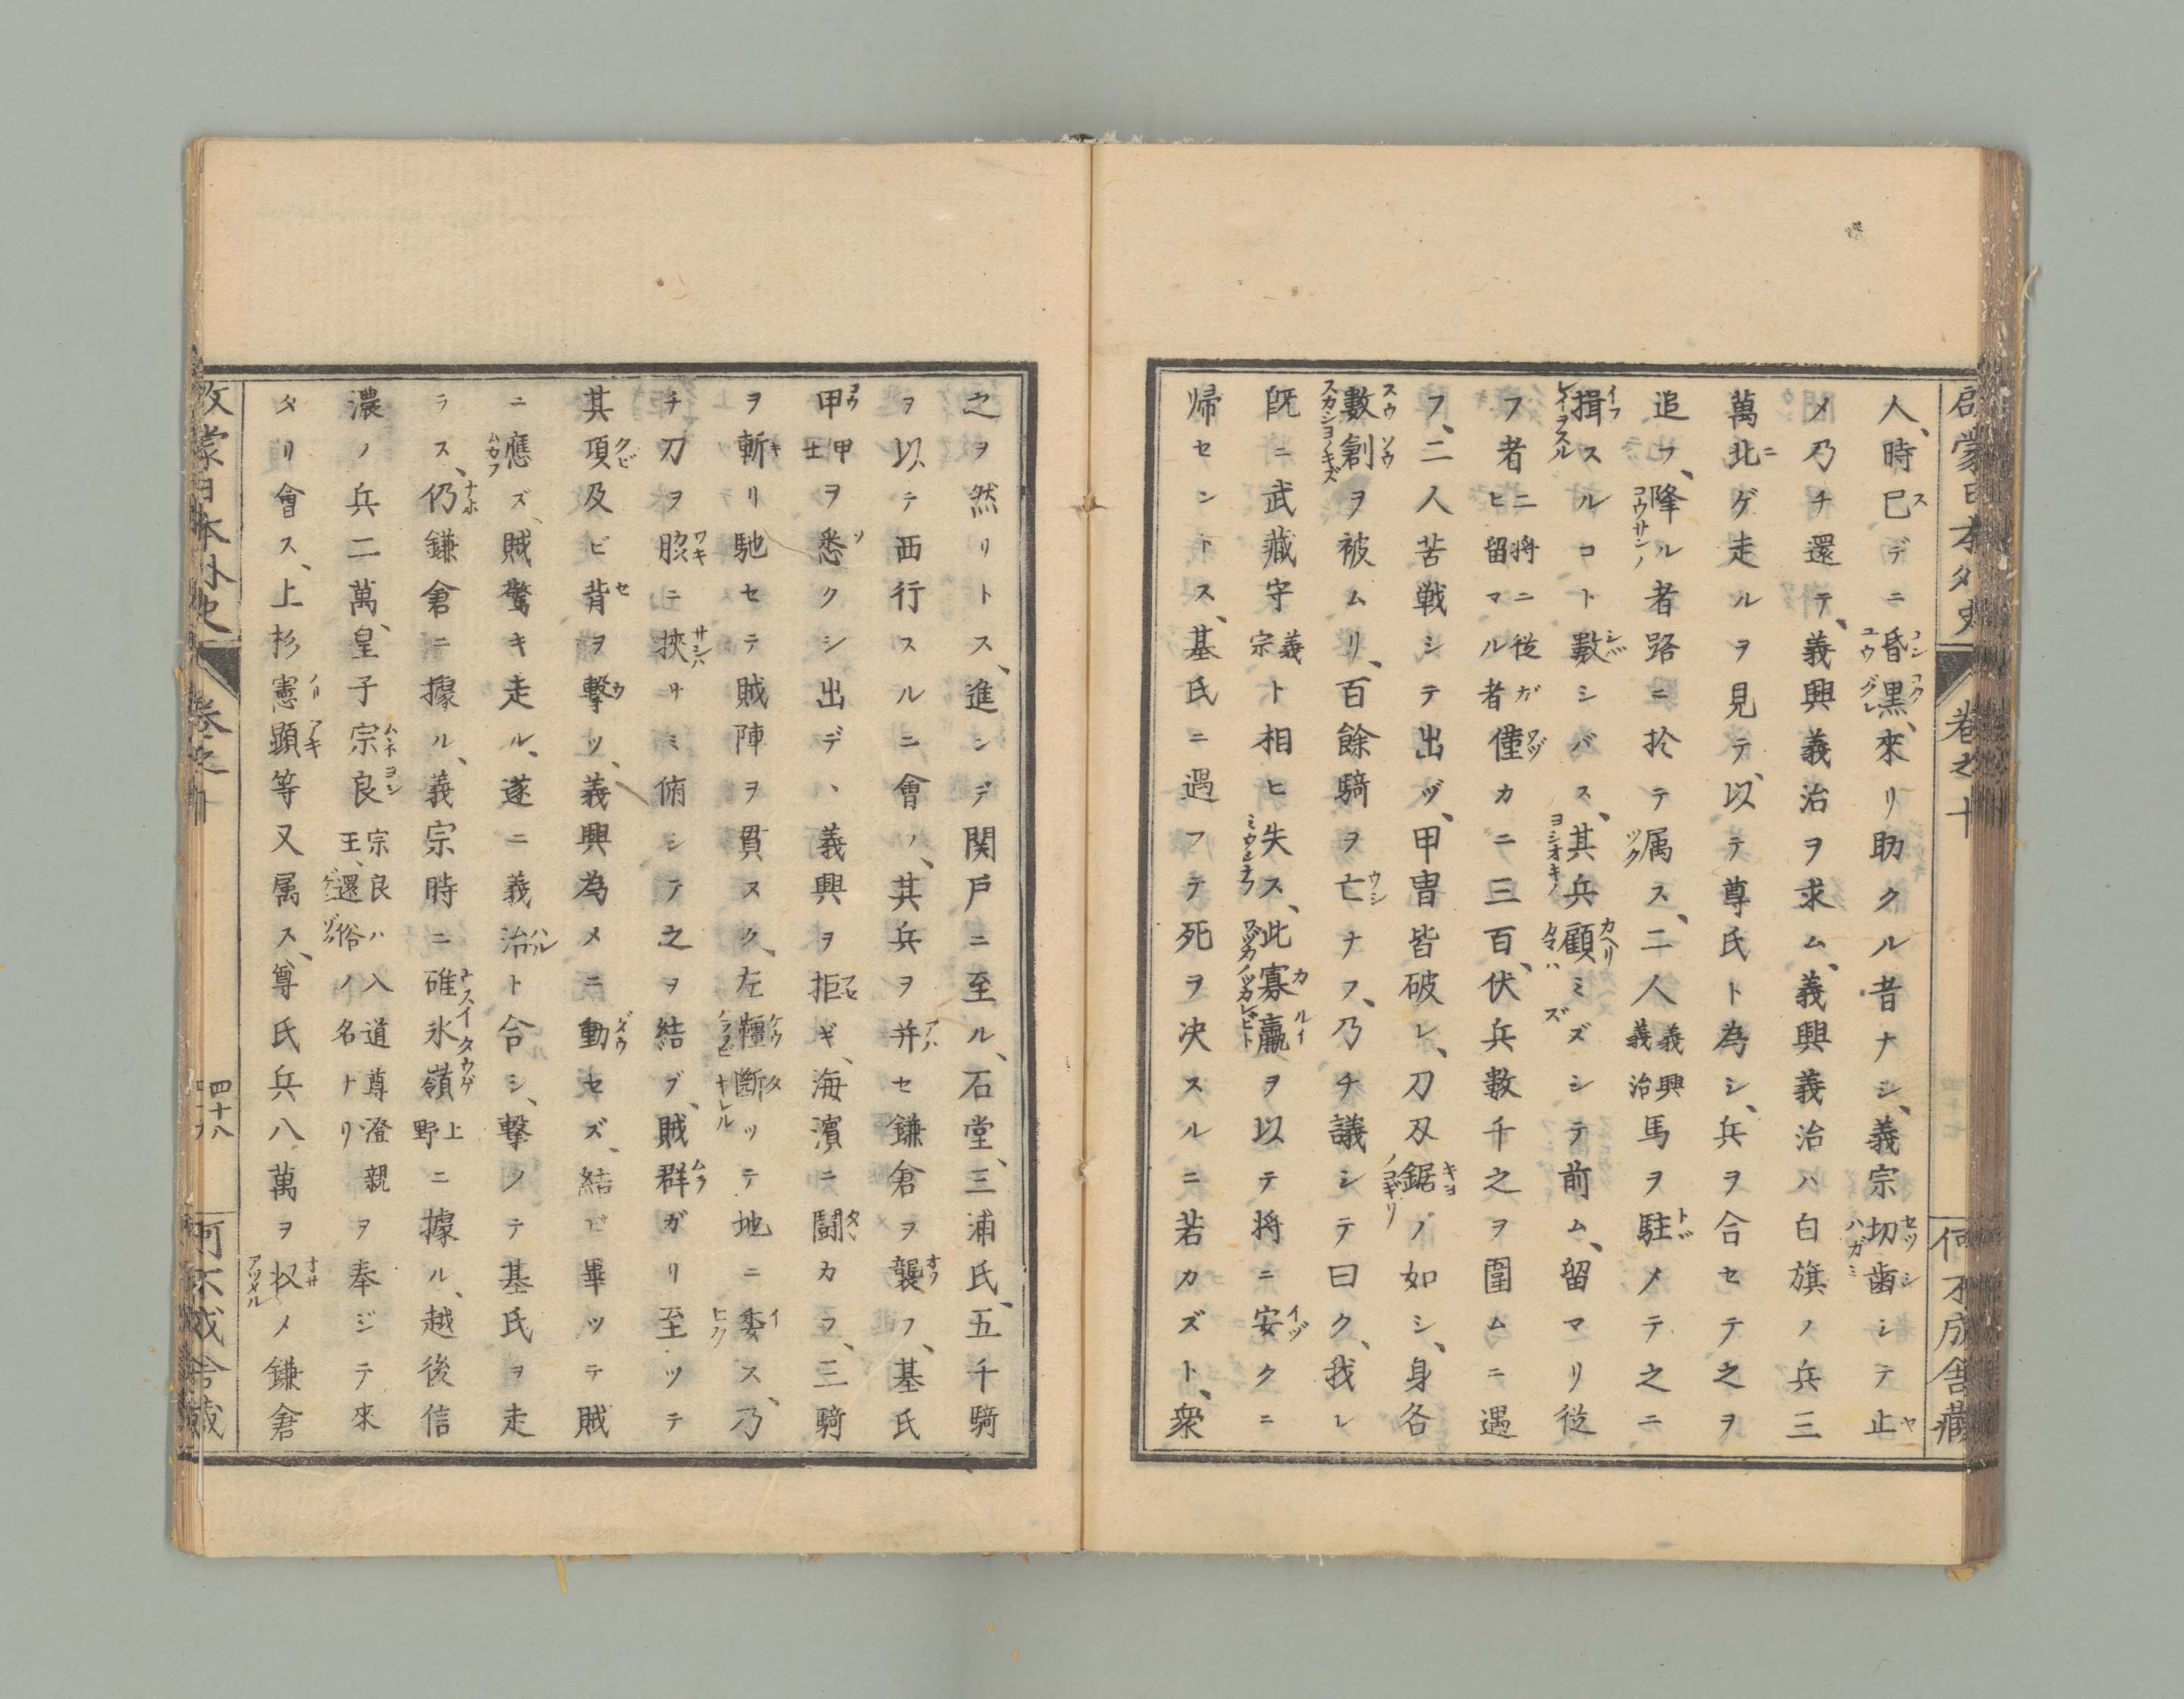 啓蒙日本外史 卷之十 何不成舍藏
人、時已デニ昏黒、來リ助クル者ナシ、義宗切齒シテ止
メ乃チ還テ、義興義治ヲ求ム、義興義治ハ白旗ノ兵三
萬北ゲ走ルヲ見テ、以テ尊氏ト為シ、兵ヲ合セテ之ヲ
追フ、降ル者路ニ於テ属ス、二人義興義治馬ヲ駐メテ之ニ
揖スルコト數シバス、其兵顧ミズシテ前ム、留マリ従
フ者二將ニ従ヒ留マル者ガ僅カニ三百、伏兵數千之ヲ圍ムニ遇
フ、二人苦戦シテ出ヅ、甲冑皆破レ、刀刄鋸ノ如シ、身各
數創ヲ被ムリ、百餘騎ヲ亡ナフ、乃チ議シテ曰ク、我レ
既ニ武藏守義宗ト相ヒ失ス、此寡羸ヲ以テ将ニ安クニ
帰センドス、基氏ニ遇フテ死ヲ决スルニ若カズト、衆
之ヲ然リトス、進ンデ関戸ニ至ル、石堂、三浦氏、五千騎
ヲ以テ西行スルニ會ノ、其兵ヲ并セ鎌倉ヲ襲フ、基氏
甲甲士ヲ悉クシ出デヽ義興ヲ拒ギ、海濱ニ闘カフ、三騎
ヲ斬リ馳セテ賊陣ヲ貫ヌク、左韁斷ッテ地ニ委ス、乃
チ刀ヲ脇ニ挾サミ俯シテ之ヲ結ブ、賊群ガリ至ツテ
其項及ビ背ヲ撃ツ、義興為メニ動セズ、結ビ畢ツテ賊
ニ應ズ、賊驚キ走ル、遂ニ義治ト合シ、撃ノテ基氏ヲ走
ラス、仍鎌倉ニ據ル、義宗時ニ碓氷嶺上野ニ據ル、越後信
濃ノ兵二萬、皇子宗良宗良ハ入道尊澄親王、還俗ノ名ナリヲ奉ジテ來
タリ會ス、上杉憲顕等又属ス、尊氏兵八萬ヲ収メ鎌倉
啓蒙日本外史 卷之十 四十八 何不成舍藏